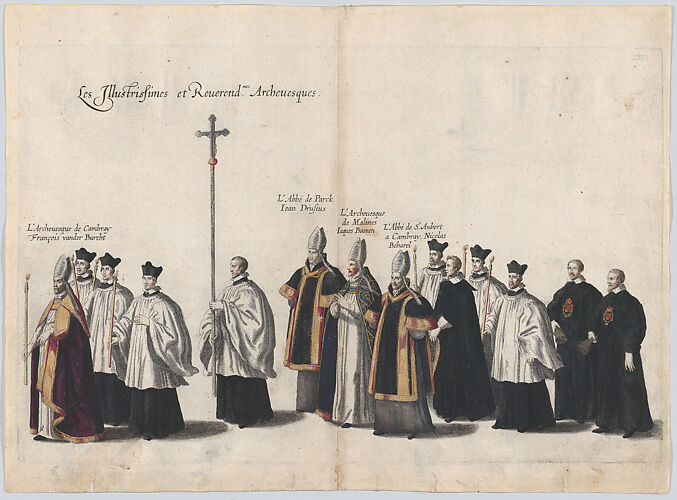 Les Illustrissimes et Reuerend.mes Archeuesques.
L'Archeuesque de Cambray
François vander Burcht
L'Abbé de Parck
Iean Drusius
L'Archeuesque
de Malines
Iaques Boonen
L'Abbé de St. Aubert
a Cambray, Nicolas